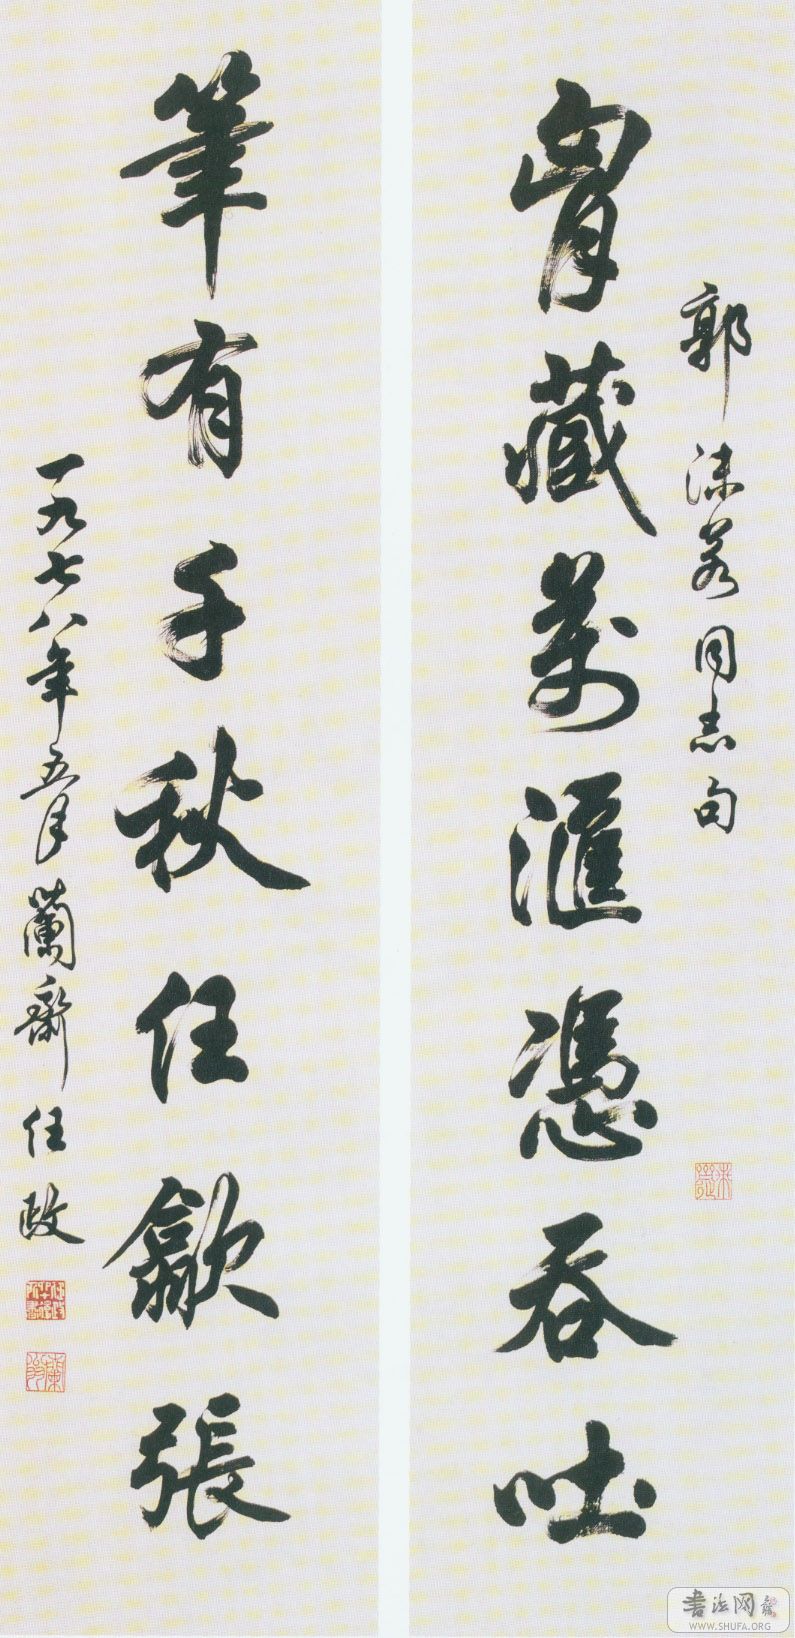 郭沫若同志句
胷藏萬滙憑吞吐
筆有千秋任歙張
一九七八年五月蘭齋任政
書法网
WWW.SHUFA.ORG